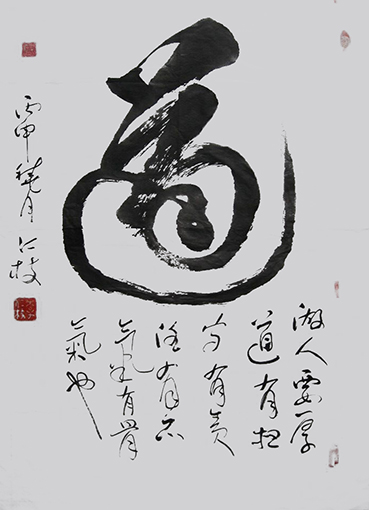 道
做人要厚
道有担
当有责
任有正
气有骨
氣也
丙申月仁枝